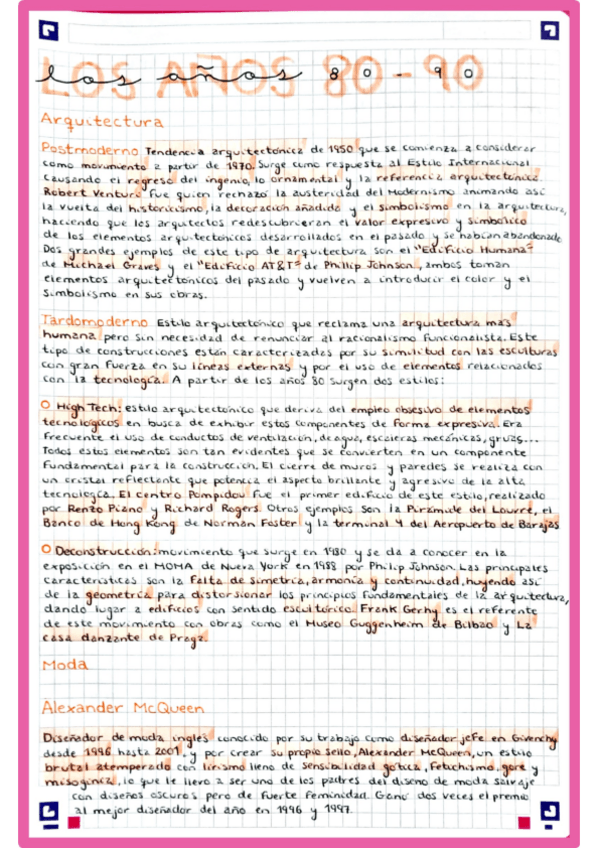 LOS AÑOS 80-90
los años 80-90
Arquitectura
Postmoderno Tendencia arquitectónica de 1950 que se comienza a considerar
como movimiento a partir de 1970. Surge como respuesta al Estilo Internacional
causando el regreso del ingenio, lo ornamental y la referencia arquitectónica.
Robert Venturi fue quien rechazó la austeridad del Modernismo animando así
la vuelta del historicismo, la decoración añadida y el simbolismo en la arquitectura,
haciendo que los arquitectos redescubrieran el valor expresivo y simbólico
de los elementos arquitectónicos desarrollados en el pasado y se habían abandonado.
Dos grandes ejemplos de este tipo de arquitectura son el "Edificio Humana"
de Michael Graves y el "Edificio AT&T" de Phillip Johnson, ambos toman
elementos arquitectónicos del pasado y vuelven a introducir el color y el
simbolismo en sus obras.
Tardomoderno Estilo arquitectónico que reclama una arquitectura más
humana pero sin necesidad de renunciar al racionalismo funcionalista. Este
tipo de construcciones están caracterizadas por su similitud con las esculturas
con gran fuerza en su líneas externas y por el uso de elementos relacionados
con la tecnología. A partir de los años 80 surgen dos estilos:
O High Tech: estilo arquitectónico que deriva del empleo obsesivo de elementos
tecnológicos en busca de exhibir estos componentes de forma expresiva. Era
frecuente el uso de conductos de ventilación, de agua, escaleras mecánicas, gruas...
Todos estos elementos son tan evidentes que se convierten en un componente
fundamental para la construcción. El cierre de muros y paredes se realiza con
un cristal reflectante que potencia el aspecto brillante y agresivo de la alta
tecnología. El centro Pompidou fue el primer edificio de este estilo, realizado
por Renzo Piano y Richard Rogers. Otros ejemplos son la Pirámide del Louvre, el
Banco de Hong Kong de Norman Foster y la terminal 4 del Aeropuerto de Barajas
O Deconstrucción: movimiento que surge en 1980 y se da a conocer en la
exposición en el MOMA de Nueva York en 1988 por Philip Johnson. Las principales
características son la falta de simetría, armonía y continuidad, huyendo así
de la geometría para distorsionar los principios fundamentales de la arquitectura,
dando lugar a edificios con sentido escultórico. Frank Gerhy es el referente
de este movimiento con obras como el Museo Guggenheim de Bilbao y La
casa danzante de Praga.
Moda
Alexander McQueen
Diseñador de moda inglés conocido por su trabajo como diseñador jefe en Givenchy
desde 1996 hasta 2001 y por crear su propio sello, Alexander McQueen, un estilo
brutal atemperado con lirismo lleno de sensibilidad gótica, fetichismo, gore y
misoginia, lo que le llevo a ser uno de los padres del diseño de moda salvaje
con diseños oscuros pero de fuerte feminidad. Ganó dos veces el premio
al mejor diseñador del año en 1996 y 1997.